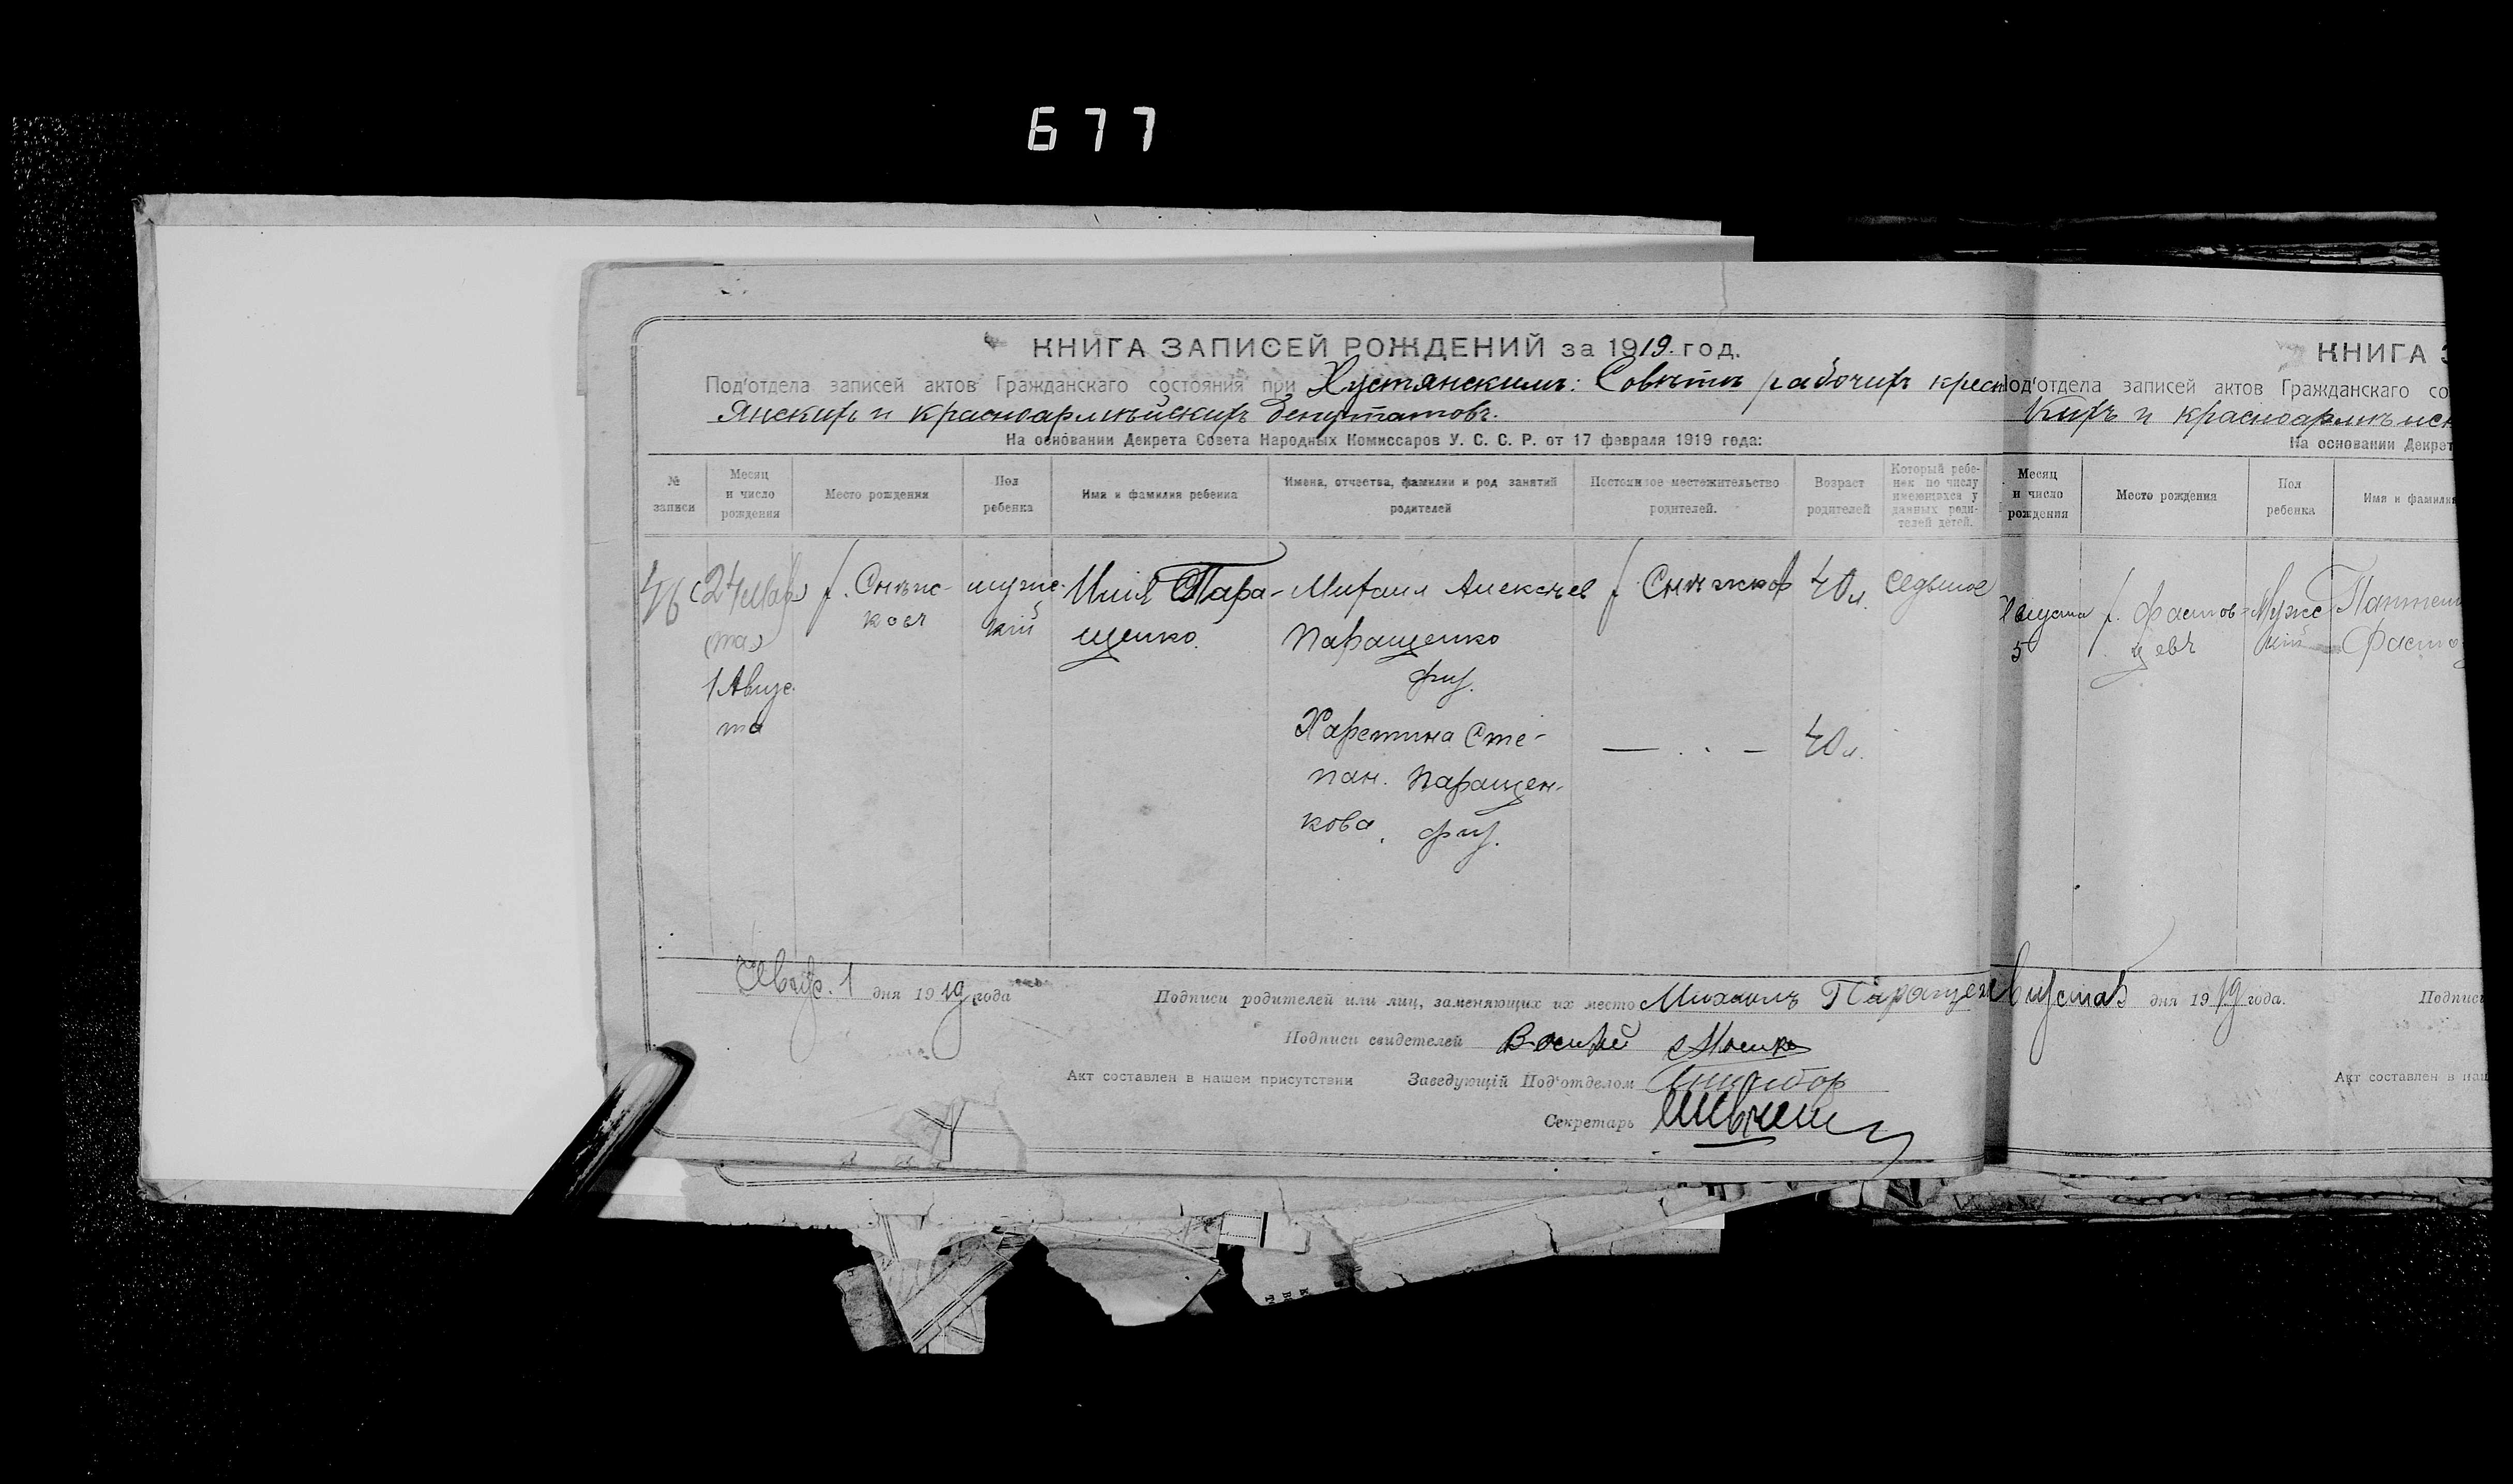 677
КНИГА ЗАПИСЕЙ РОЖДЕНИЙ за 1919 год.
Под'отдела записей актов Гражданскаго состояния при Хустянскимъ: Совѣтѣ рабочихъ крест
янскихъ и красноармѣйскихъ депутатовъ.
На основании Декрета Совета Народных Комиссаров У. С. С. Р. от 17 февраля 1919 года:
№ записи
Месяц и число рождения
Место рождения
Пол ребенка
Имя и фамилия ребенка
Имена, отчества, фамилии и род занятий родителей
Постоянное местожительство родителей.
Возраст родителей
Который ребенок по числу имеющихся у данных родителей детей.
46
(24 мар)
(та)
1 Авгус
та
х. Снѣж-
ковъ
мужс
кій
Илія Пара-
щенко.
Михаил Алексѣев
Паращенко
Харетина Сте-
пан. Паращен-
кова.
х. Снѣжков
40 л.
седьмое
— . . —
40 л.
1 дня 1919 года
Подписи родителей или лиц, заменяющих их место Михаилъ Паращен
Подписи свидетелей
Акт составлен в нашем присутствии
Заведующій Под'отделом
Секретарь
КНИГА З
Под'отдела записей актов Гражданскаго со
кихъ и красноармѣйск
На основании Декрет
Месяц и число рождения
Место рождения
Пол ребенка
Имя и фамилия
Августа
5
х. Фастов-
цевъ
Мужс
кій
Пантели
Фасто
вгуста 5 дня 1919 года.
Подписи
Акт составлен в наш